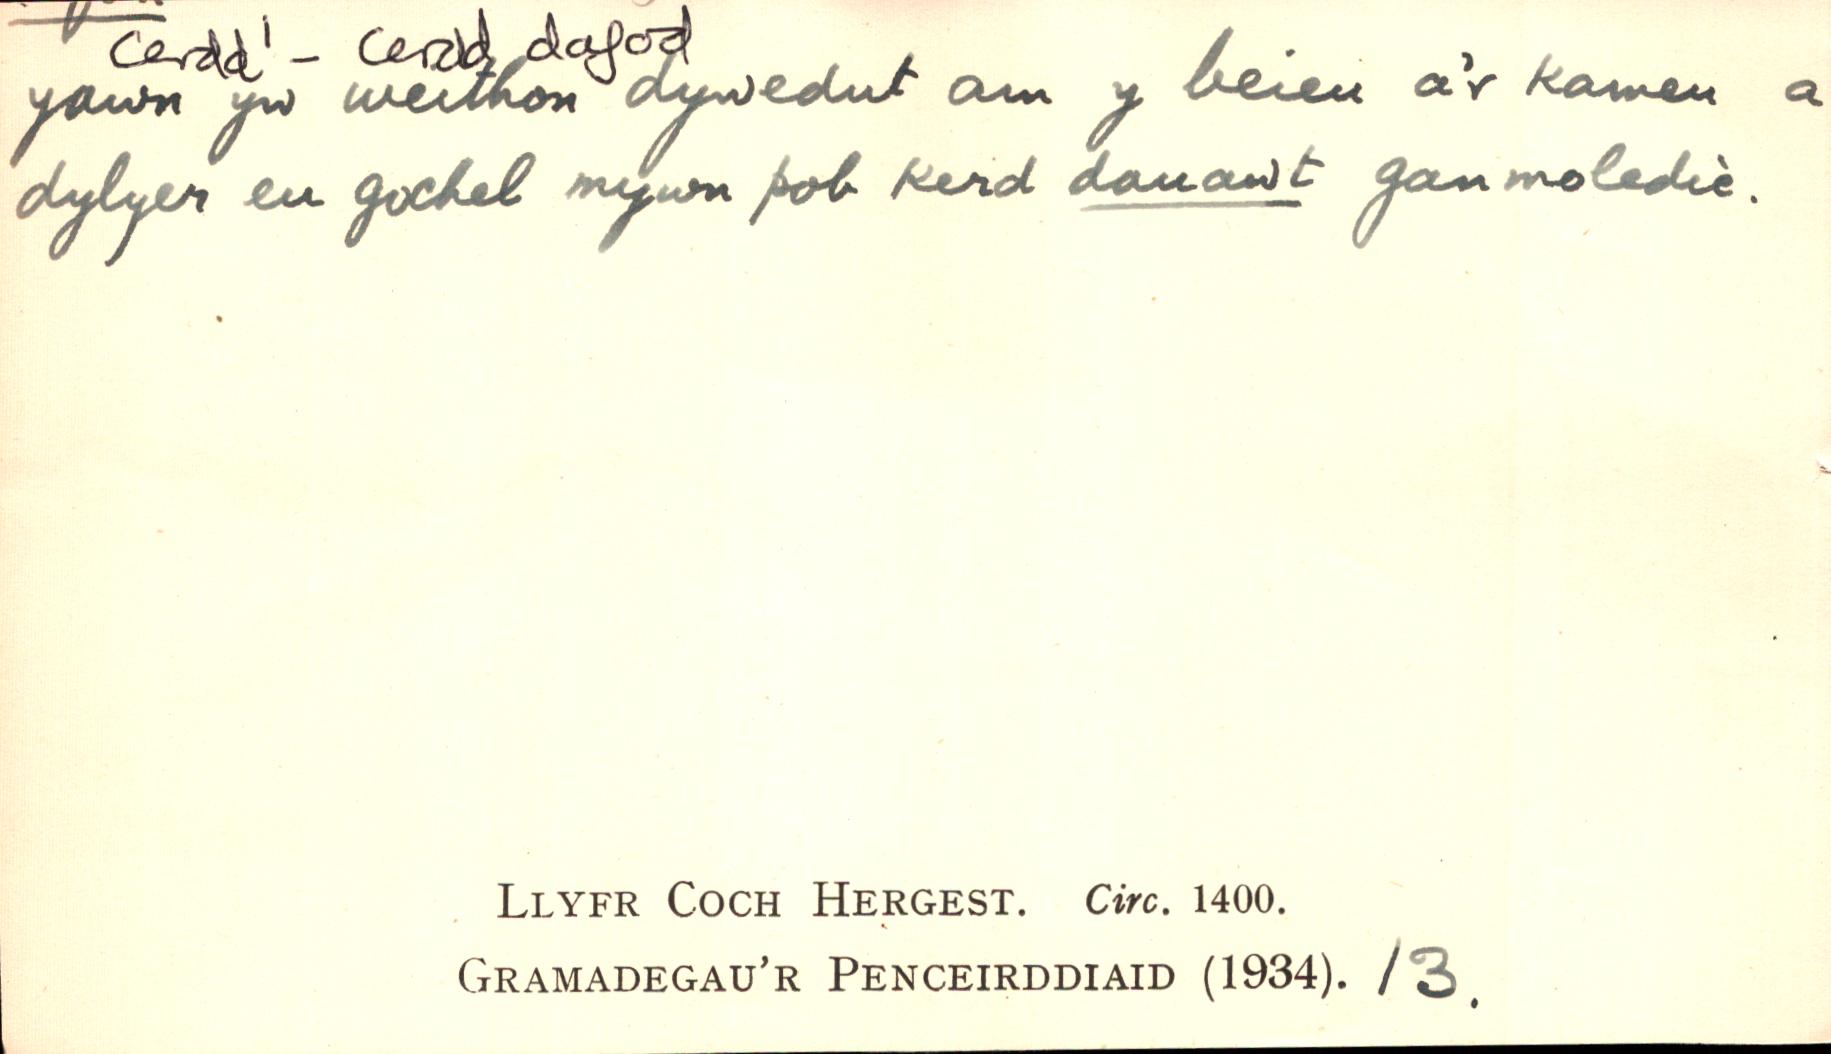 cerdd¹ - cerdd dafod
yawn yw weithon dywedut am y beieu a'r kameu a
dylyer eu gochel mywn pob kerd dauawt ganmoledic.
LLYFR COCH HERGEST. Circ. 1400.
GRAMADEGAU'R PENCEIRDDIAID (1934). 13.